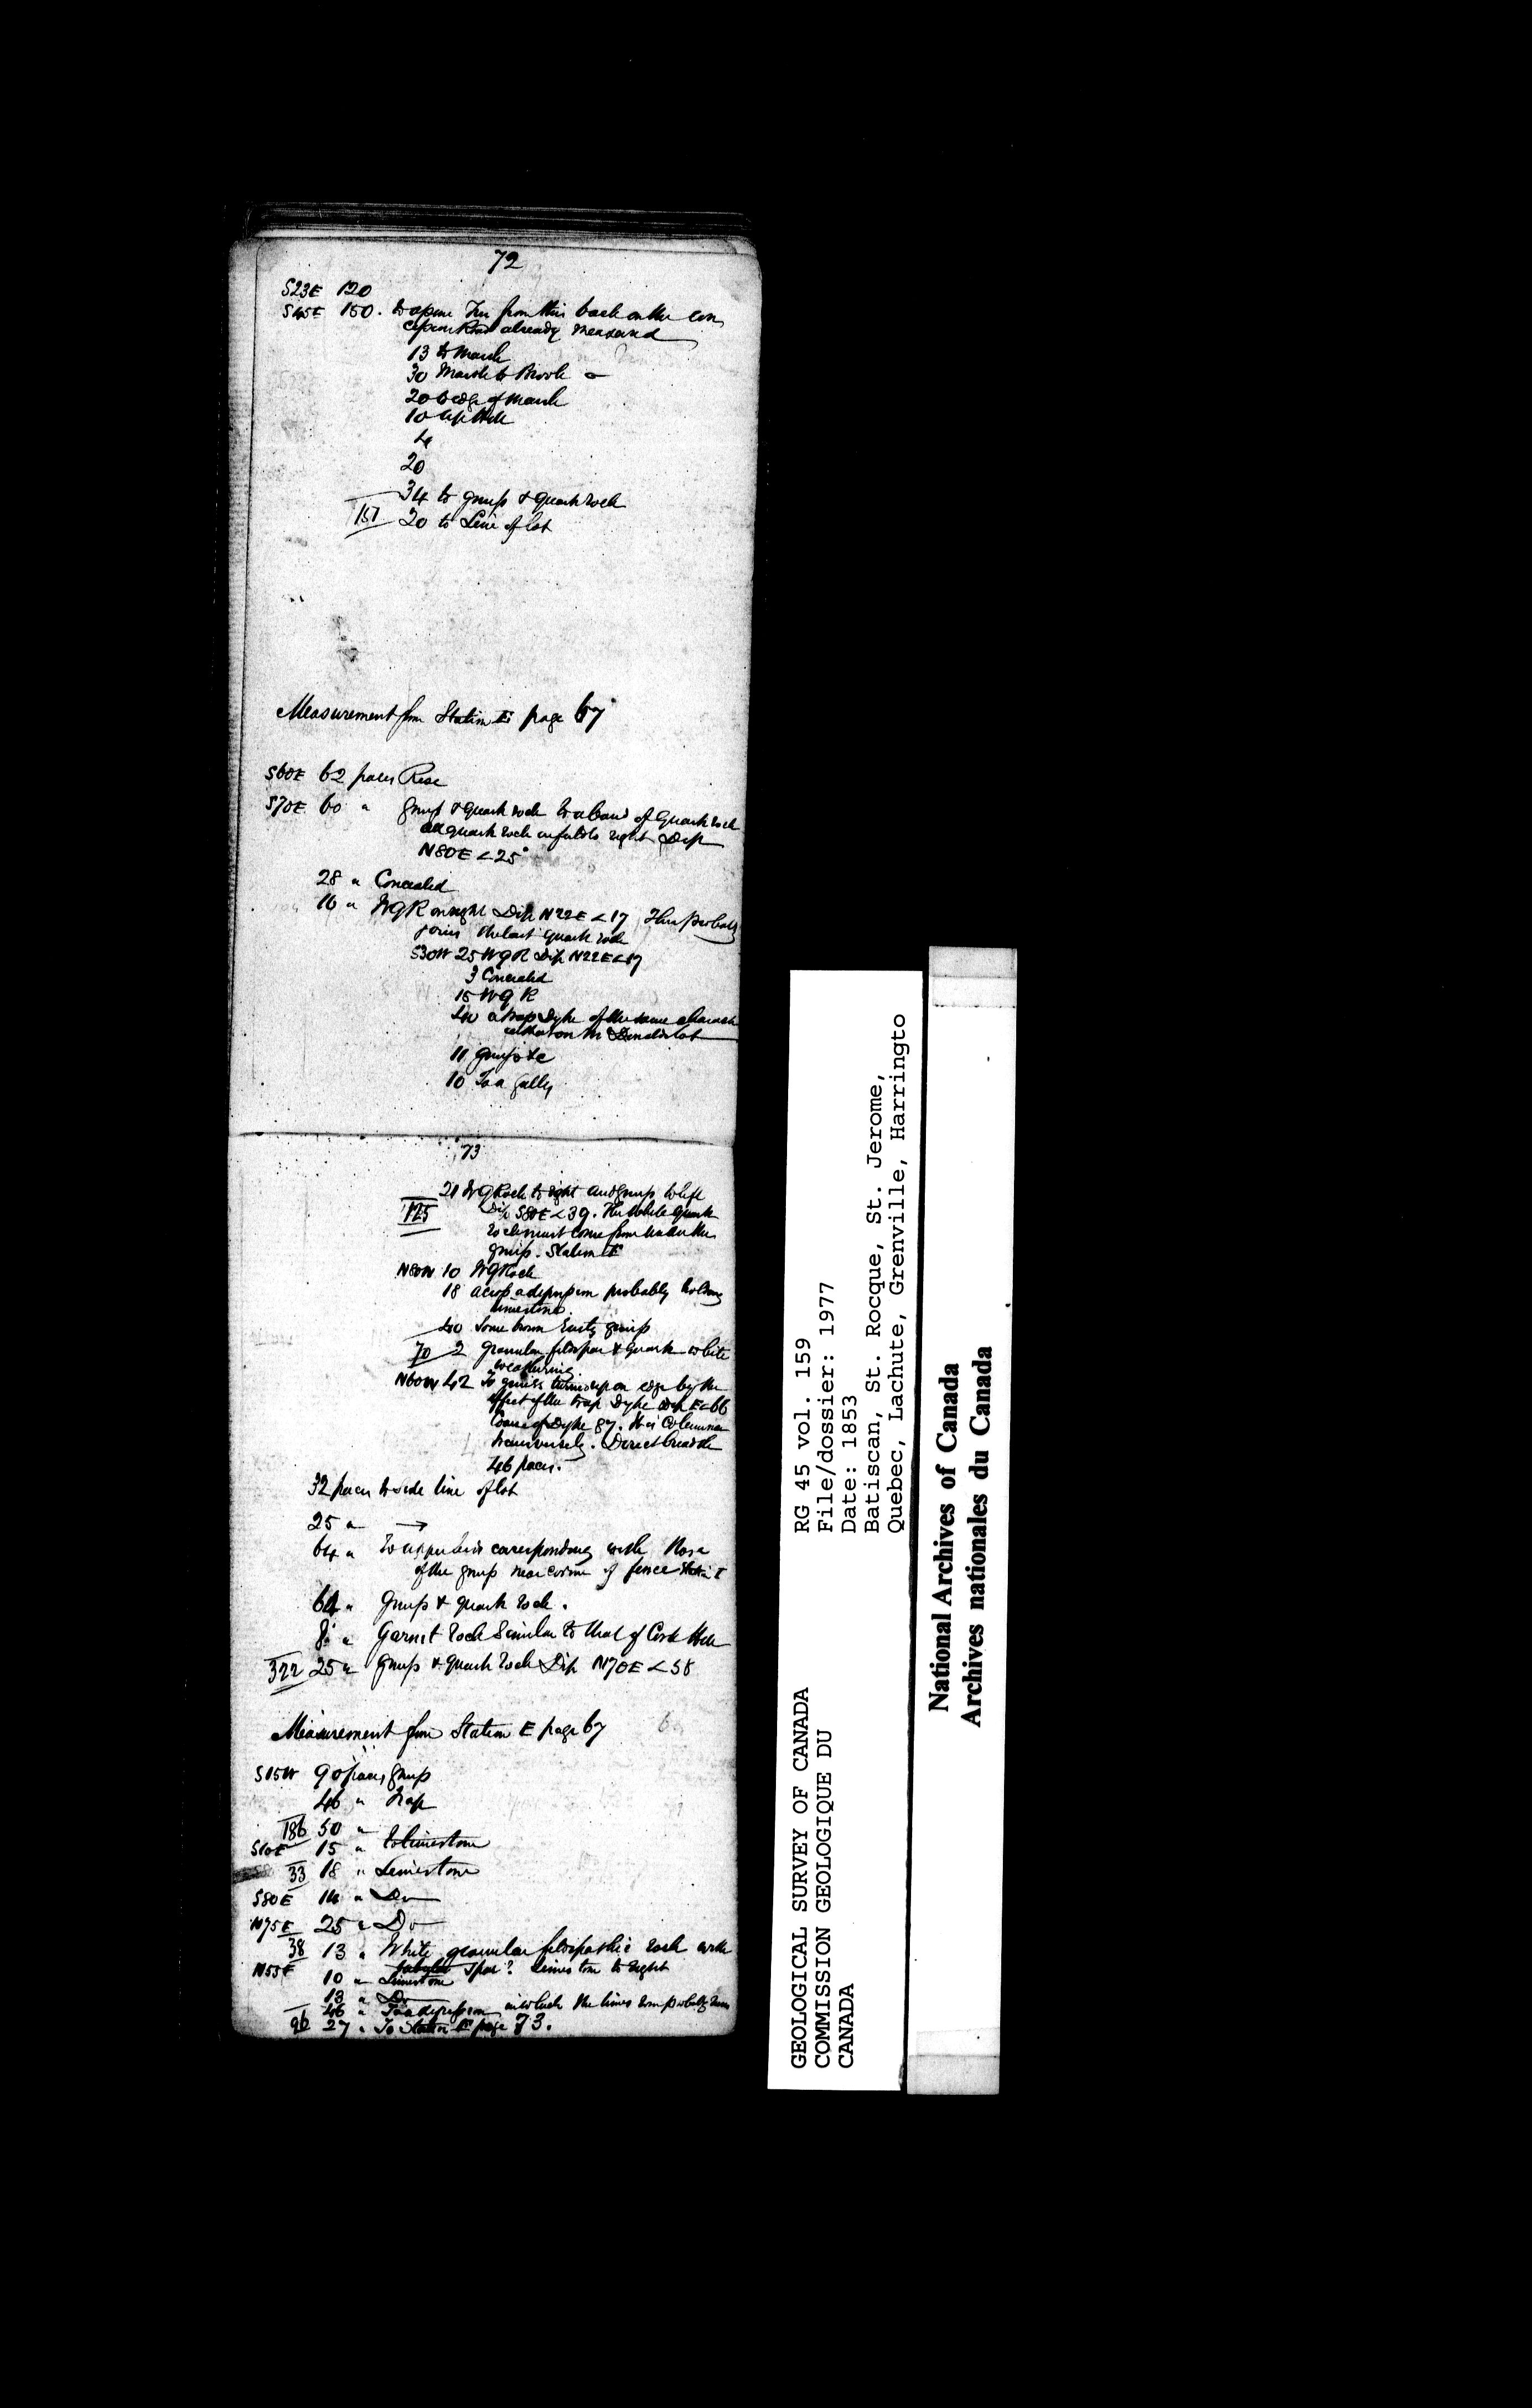 72
S23E 120
S45E 150. to a pine Tree from this back on the con
cession Road already measured
13 to Marsh
30 Marsh to Brook
20 to edge of Marsh
10 up Hill
4
20
34 to gneiss & quartz rock
151 20 to Line of lot
Measurement from Station E page 67
S60E 62 paces Rise
S70E 60 " gneiss & quartz rock to a band of quartz rock
quartz rock to right Dip
N80E < 25°
28 " Concealed
16 " WQR on right Dip N22E < 17 This probably
joins the last quartz rock
S30W 25 WQR Dip N22E < 17
3 Concealed
15 WQR
40 a trap Dyke of the same charac
on Mc Donalds lot
11 gneiss &c
10 To a gully
73
21 WQ Rock to right and gneiss to left
125 Dip S80E < 39. The white quartz
rock must come from under the
gneiss. Station E'
N80W 10 WQ Rock
18 across a depression probably holding
limestone
40 Some brown rusty gneiss
70 2 granular feldspar & quartz white
weathering
N60W 42 To gneiss turned up on edge by the
effect of the trap Dyke dip E < 66
Course of Dyke 87. It is Columnar
transversely. Direct breadth
46 paces.
32 paces to side line of lot
25 " →
64 " corresponding with Nose
of the gneiss near corner of fence Station E
64 " Gneiss & quartz rock.
8 " Garnet rock similar to that of Hill
322 25 " Gneiss & quartz rock Dip N70E < 58
Measurement from Station E page 67
S15W 90 paces gneiss
46 " Trap
186 50 "
S10E 15 " to limestone
33 18 " Limestone
S80E 14 " Do
N75E 25 " Do
38 13 " White granular feldspathic rock with
N55E spar? Limestone to right
10 " Limestone
13 " Do
46 " To a depression in which the limestone probably runs
96 27 " To Station E' page 73.
GEOLOGICAL SURVEY OF CANADA
COMMISSION GEOLOGIQUE DU
CANADA
RG 45 vol. 159
File/dossier: 1977
Date: 1853
Batiscan, St. Rocque, St. Jerome,
Quebec, Lachute, Grenville, Harringto
National Archives of Canada
Archives nationales du Canada